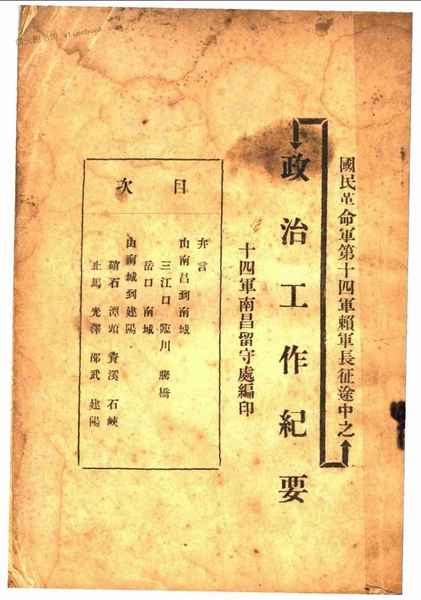 國民革命軍第十四軍賴軍長征途中之
政治工作紀要
十四軍南昌留守處編印
目次
弁言
由南昌到南城
三江口 臨川 滕橋
岳口 南城
由南城到建陽
硝石 潭頭 資溪 石峽
止馬 光澤 邵武 建陽